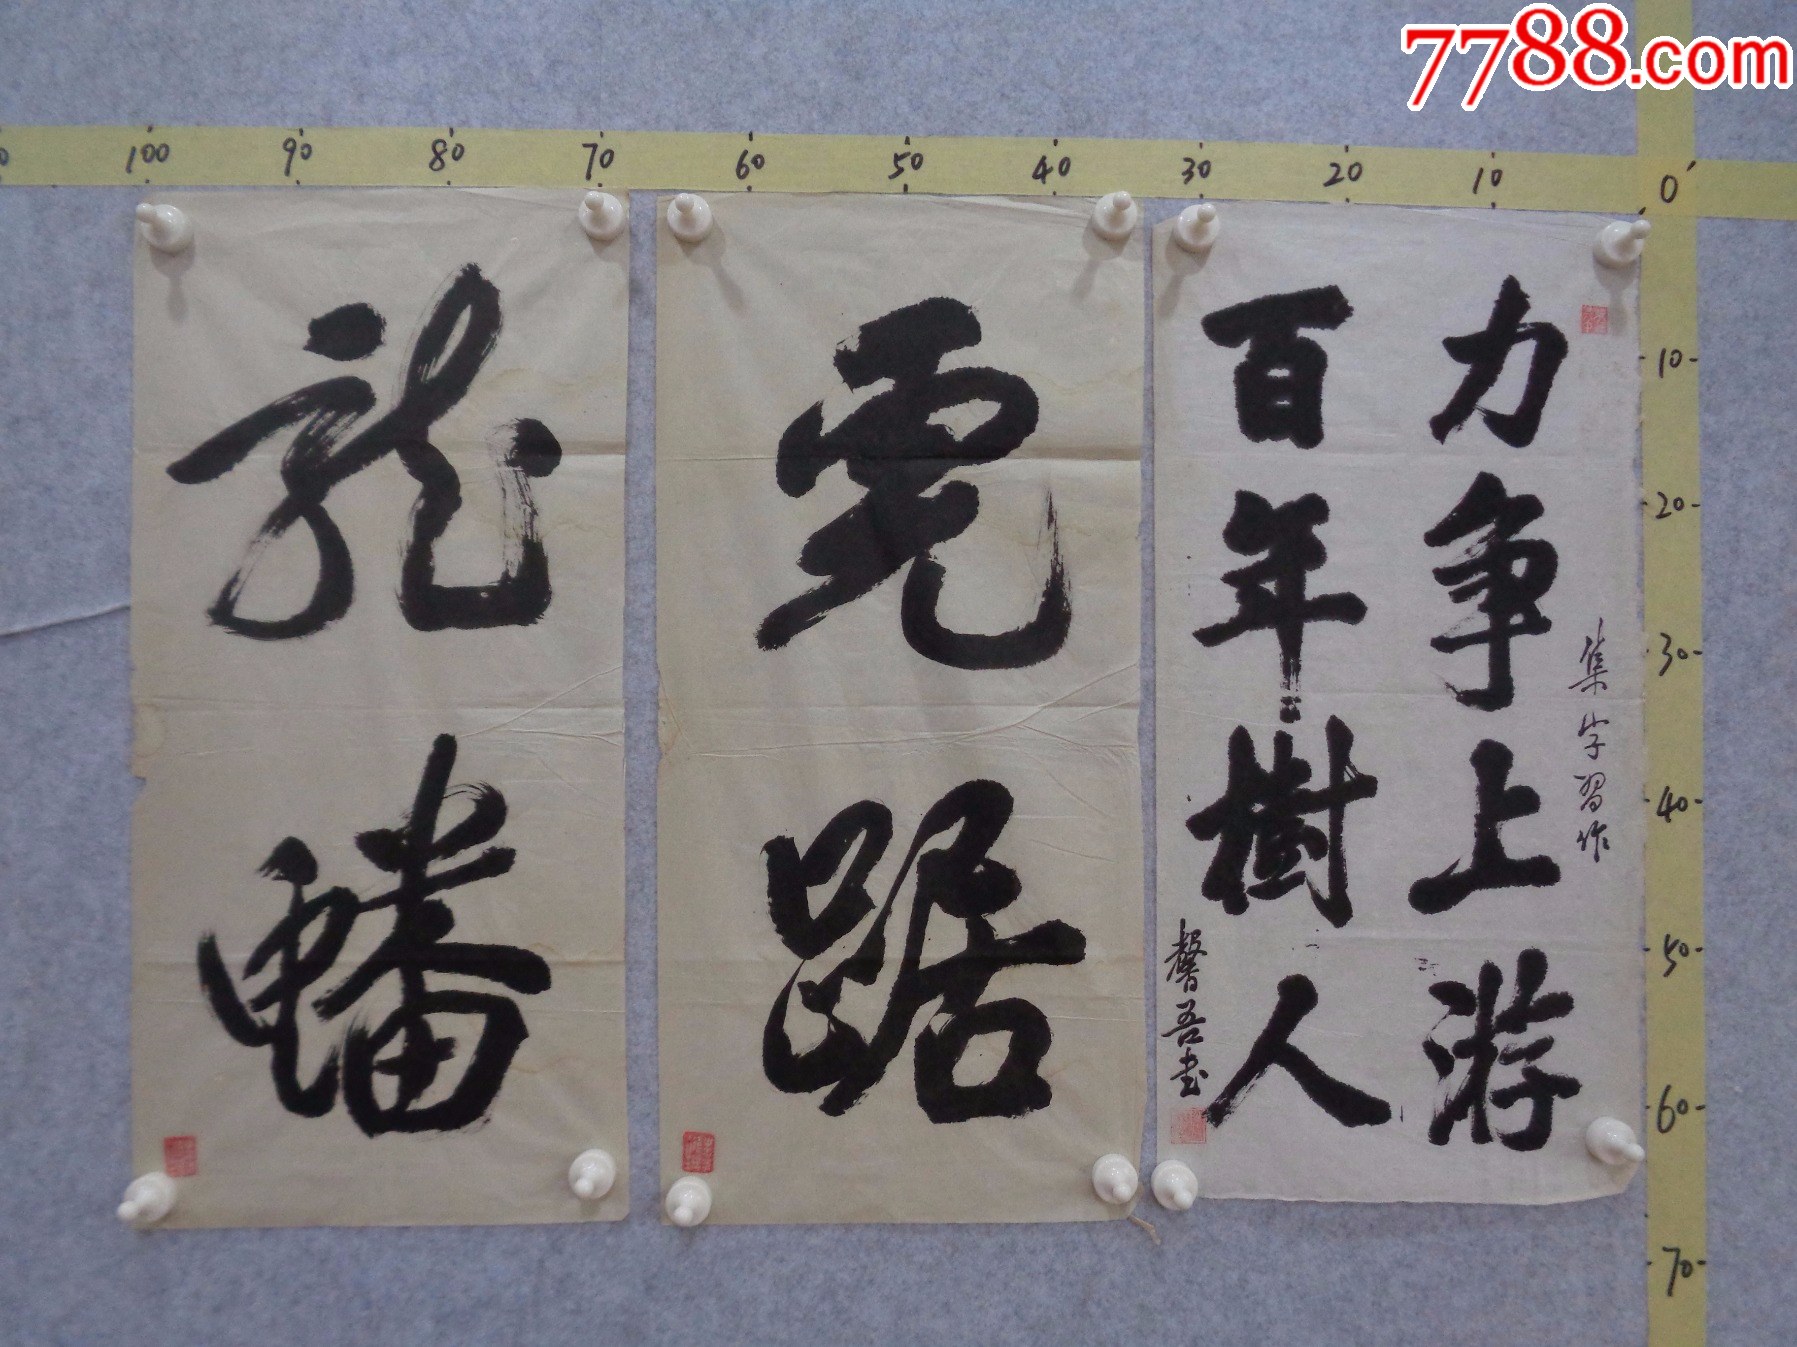 7788.com
0 100 90 80 70 60 50 40 30 20 10 0
10
20
30
40
50
60
70
力争上游
百年樹人
集字習作
馨吾书
虎踞
龍蟠